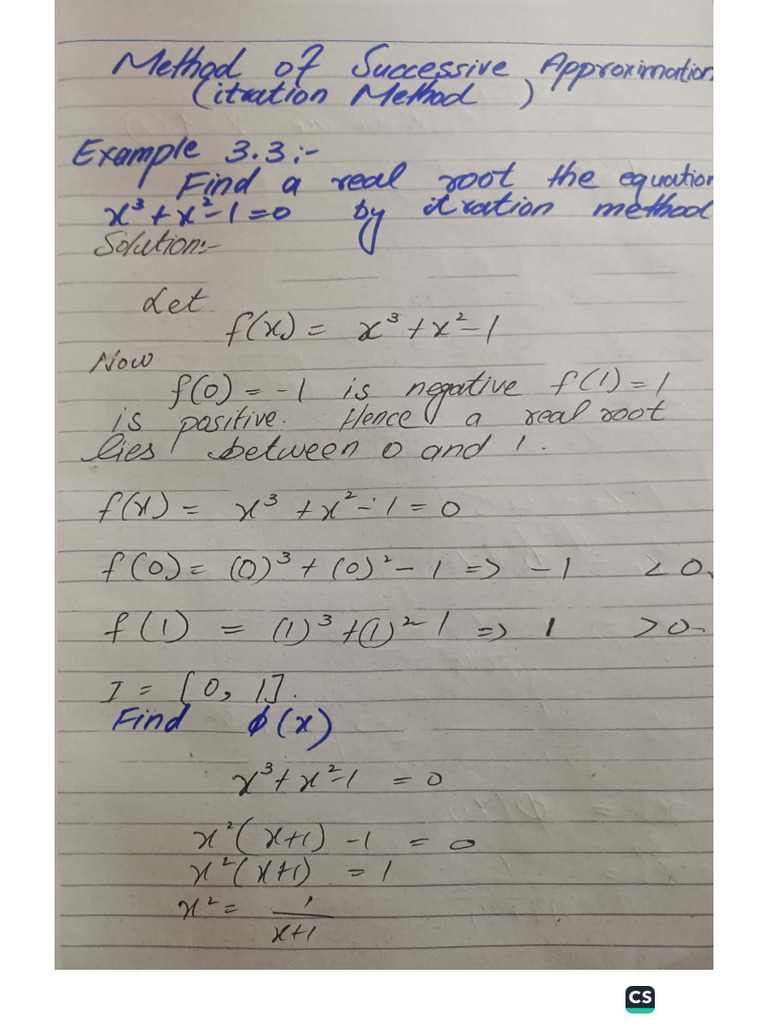 Method of Successive Approximation
(itration Method )
Example 3.3:-
Find a real root the equation
x³+x²-1=0 by itration method
Solution:-
Let
f(x) = x³+x²-1
Now
f(0) = -1 is negative f(1)=1
is positive. Hence a real root
lies between 0 and 1.
f(x) = x³+x²-1=0
f(0) = (0)³+(0)²-1 => -1 <0.
f(1) = (1)³+(1)²-1 => 1 >0-
I = [0, 1].
Find ϕ(x)
x³+x²-1 = 0
x²(x+1) -1 = 0
x²(x+1) = 1
x² = 1
x+1
CS